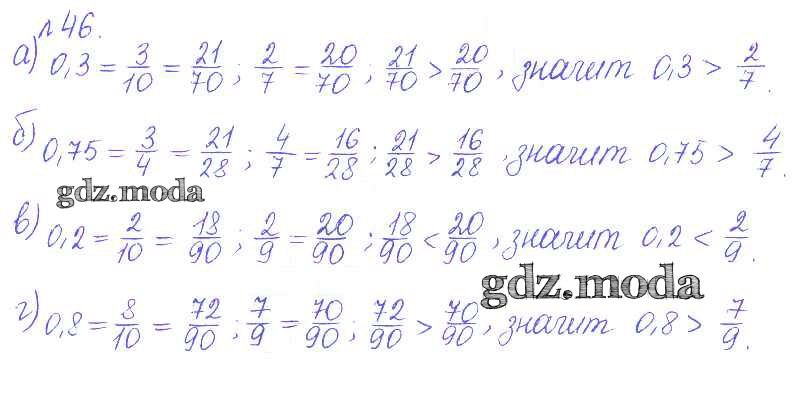 № 46.
а) 0,3 = 3/10 = 21/70 ; 2/7 = 20/70 ; 21/70 > 20/70 , значит 0,3 > 2/7 .
б) 0,75 = 3/4 = 21/28 ; 4/7 = 16/28 ; 21/28 > 16/28 , значит 0,75 > 4/7 .
gdz.moda
в) 0,2 = 2/10 = 18/90 ; 2/9 = 20/90 ; 18/90 < 20/90 , значит 0,2 < 2/9 .
gdz.moda
г) 0,8 = 8/10 = 72/90 ; 7/9 = 70/90 ; 72/90 > 70/90 , значит 0,8 > 7/9 .